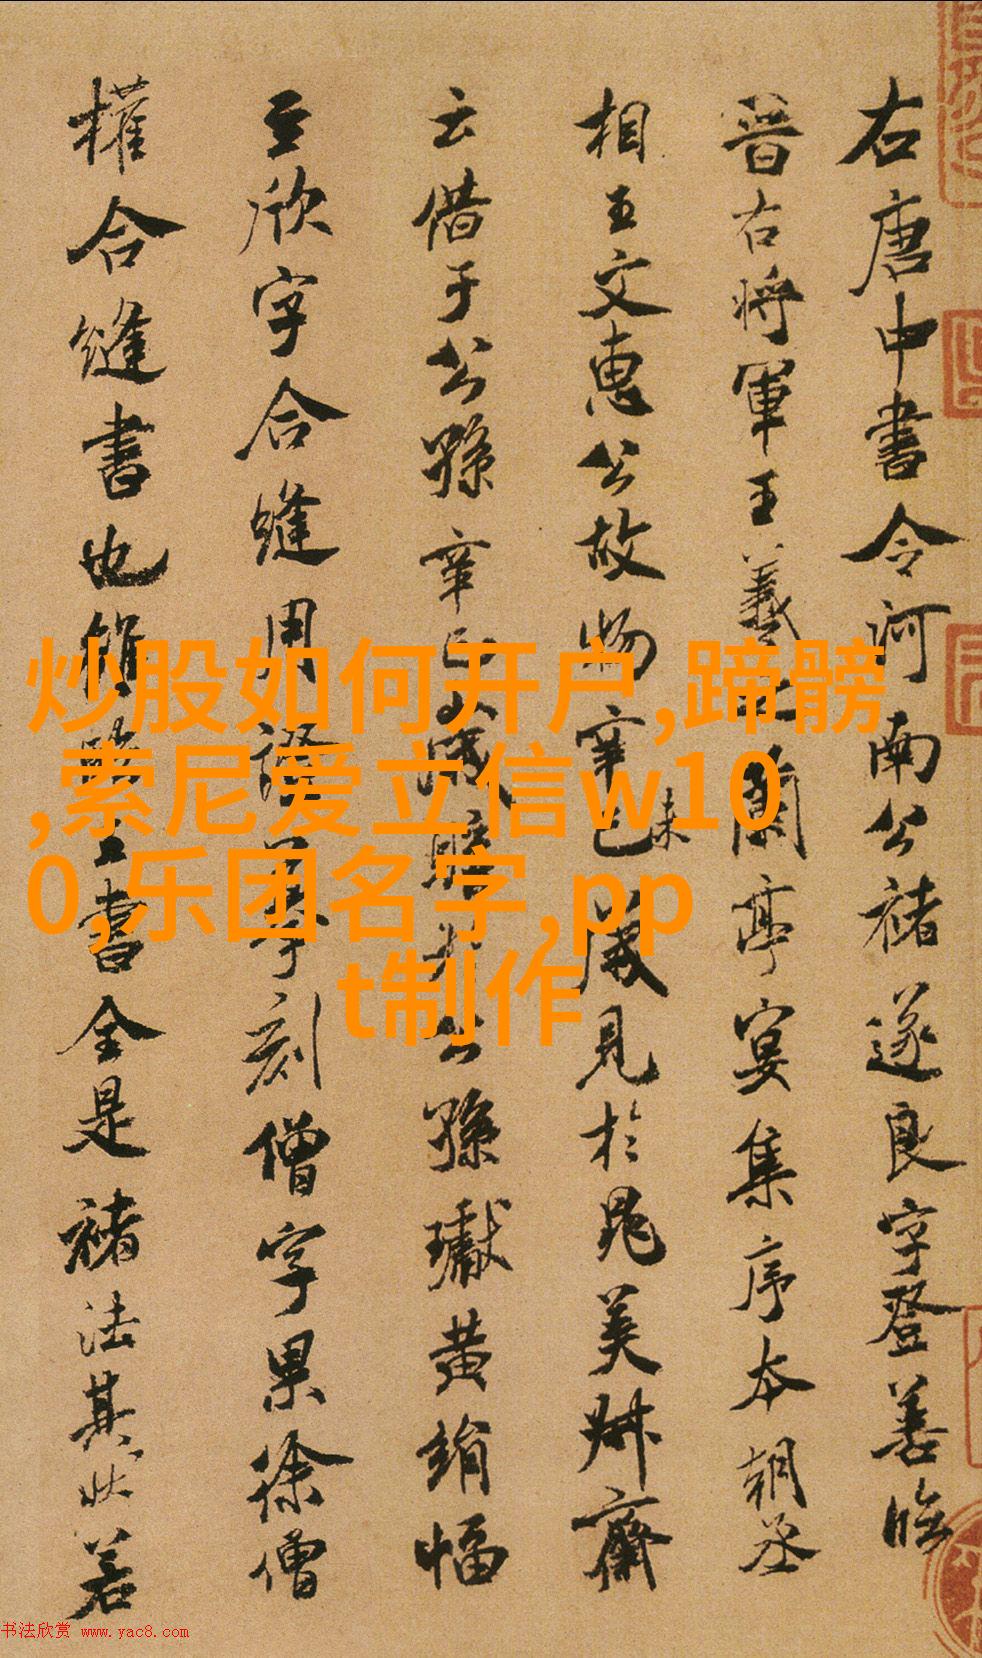 右唐中書令河南公褚遂良字登善臨
晉右將軍王羲之蘭亭宴集序本朝丞
相王文惠公故物辛巳歲見於晁美叔齋
未
云借于公孫辛巳歲購於公孫瓛黃絹幅
至欣字合縫用證摹刻僧字果徐僧
權合縫書也雖臨王書全是褚法其狀若
炒股如何开户,蹄髈
,索尼爱立信w10
0,乐团名字,pp
t制作
书法欣赏 www.yac8.com